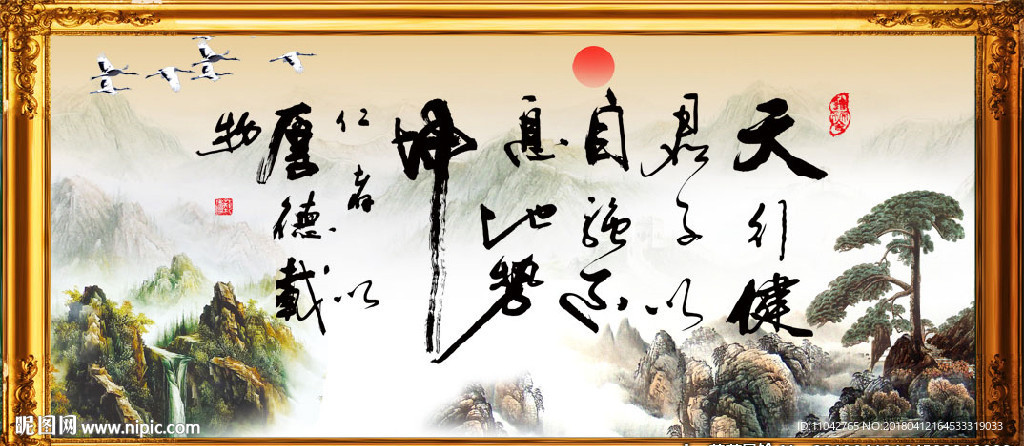 天行健
君子以
自强不
息地势
坤
仁者以
厚德载
物
昵图网 www.nipic.com
ID:11042765 NO:20180412164533319033